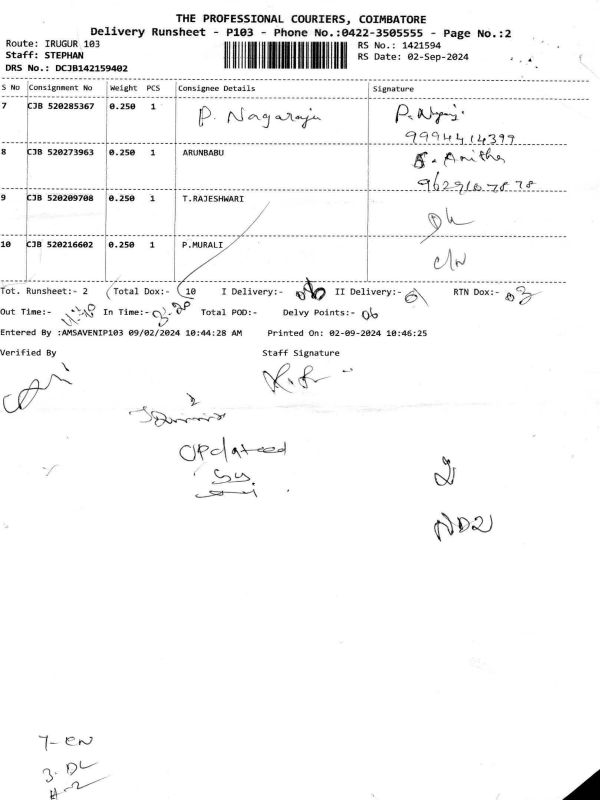 THE PROFESSIONAL COURIERS, COIMBATORE
Delivery Runsheet - P103 - Phone No.:0422-3505555 - Page No.:2
Route: IRUGUR 103
Staff: STEPHAN
DRS No.: DCJB142159402
RS No.: 1421594
RS Date: 02-Sep-2024
S No Consignment No Weight PCS Consignee Details Signature
7 CJB 520285367 0.250 1 P. Nagaraju
9994414399
8 CJB 520273963 0.250 1 ARUNBABU S. Anitha
9 CJB 520209708 0.250 1 T.RAJESHWARI DL
10 CJB 520216602 0.250 1 P.MURALI
Tot. Runsheet:- 2 Total Dox:- 10 I Delivery:- 06 II Delivery:- RTN Dox:- 03
Out Time:- In Time:- 3-20 Total POD:- Delvy Points:- 06
Entered By :AMSAVENIP103 09/02/2024 10:44:28 AM Printed On: 02-09-2024 10:46:25
Verified By Staff Signature
UPdateed
by
2
ND2
7- CN
3- DL